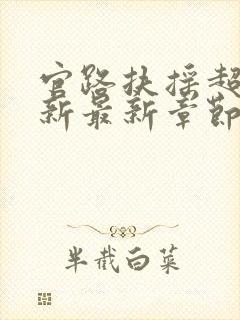 官路扶摇超
新最新章节
半截白菜